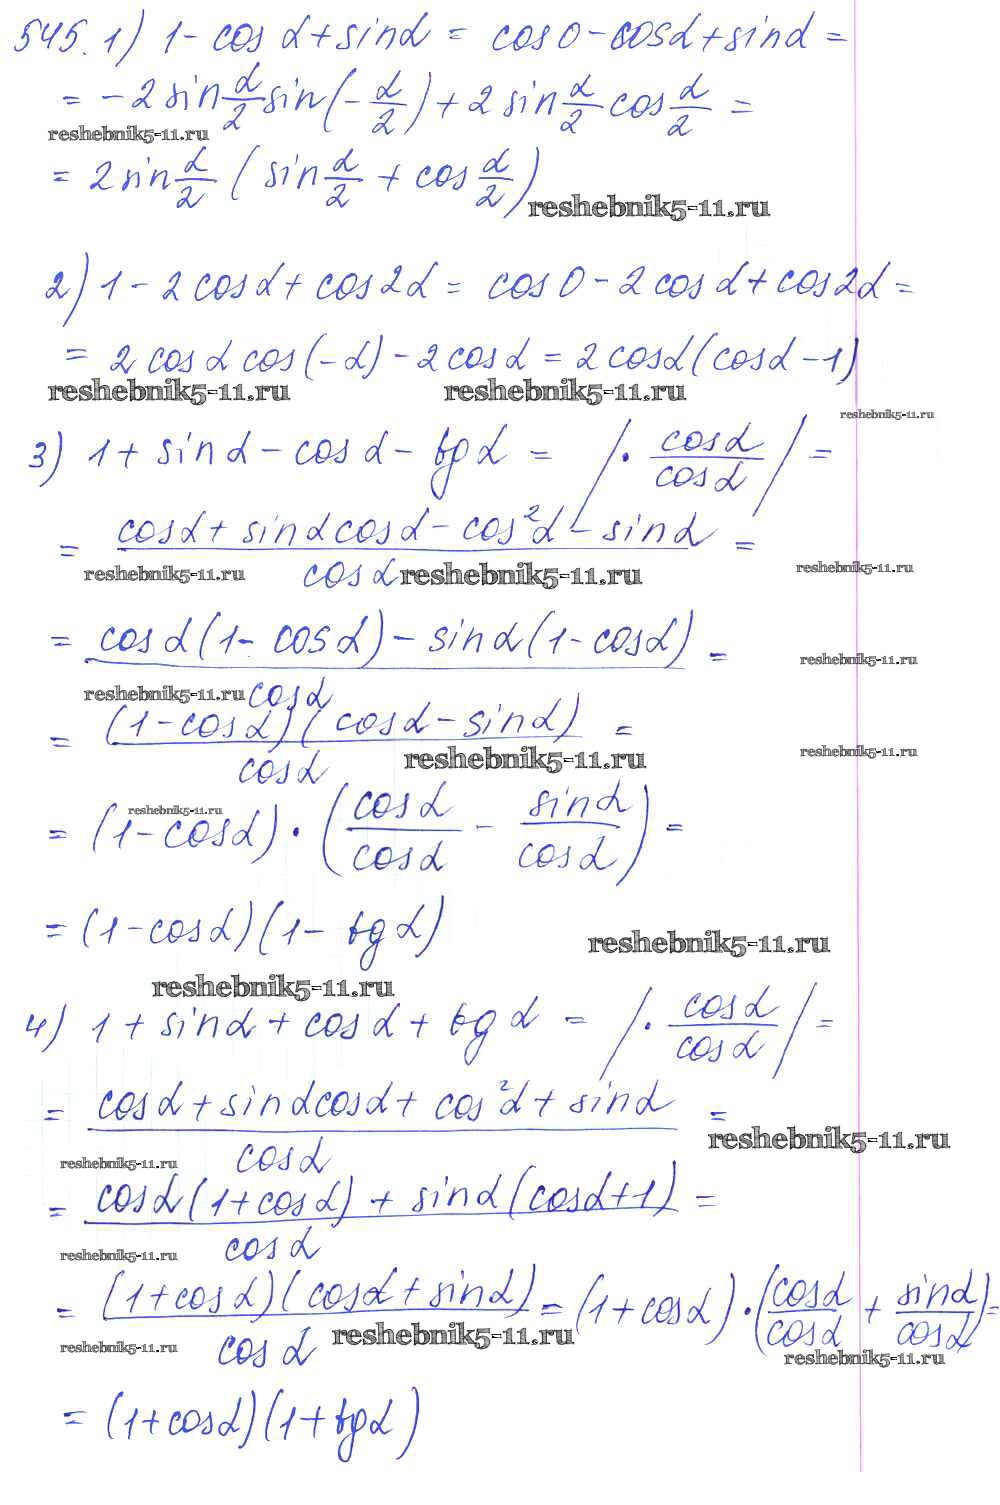 545. 1) 1 - cos α + sin α = cos 0 - cos α + sin α =
= -2 sin α/2 sin(-α/2) + 2 sin α/2 cos α/2 =
reshebnik5-11.ru
= 2 sin α/2 (sin α/2 + cos α/2)
reshebnik5-11.ru
2) 1 - 2 cos α + cos 2α = cos 0 - 2 cos α + cos 2α =
= 2 cos α cos(-α) - 2 cos α = 2 cos α (cos α - 1)
reshebnik5-11.ru reshebnik5-11.ru
reshebnik5-11.ru
3) 1 + sin α - cos α - tg α = | · cos α/cos α | =
= (cos α + sin α cos α - cos² α - sin α)/cos α =
reshebnik5-11.ru reshebnik5-11.ru reshebnik5-11.ru
= (cos α (1 - cos α) - sin α (1 - cos α))/cos α =
reshebnik5-11.ru
reshebnik5-11.ru
= ((1 - cos α)(cos α - sin α))/cos α =
reshebnik5-11.ru reshebnik5-11.ru
reshebnik5-11.ru
= (1 - cos α) · (cos α/cos α - sin α/cos α) =
= (1 - cos α)(1 - tg α)
reshebnik5-11.ru
reshebnik5-11.ru
4) 1 + sin α + cos α + tg α = | · cos α/cos α | =
= (cos α + sin α cos α + cos² α + sin α)/cos α =
reshebnik5-11.ru
reshebnik5-11.ru
= (cos α (1 + cos α) + sin α (cos α + 1))/cos α =
reshebnik5-11.ru
= ((1 + cos α)(cos α + sin α))/cos α = (1 + cos α) · (cos α/cos α + sin α/cos α) =
reshebnik5-11.ru reshebnik5-11.ru reshebnik5-11.ru
= (1 + cos α)(1 + tg α)